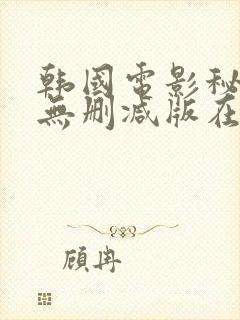 韩國電影秘
無删减版在
顾冉